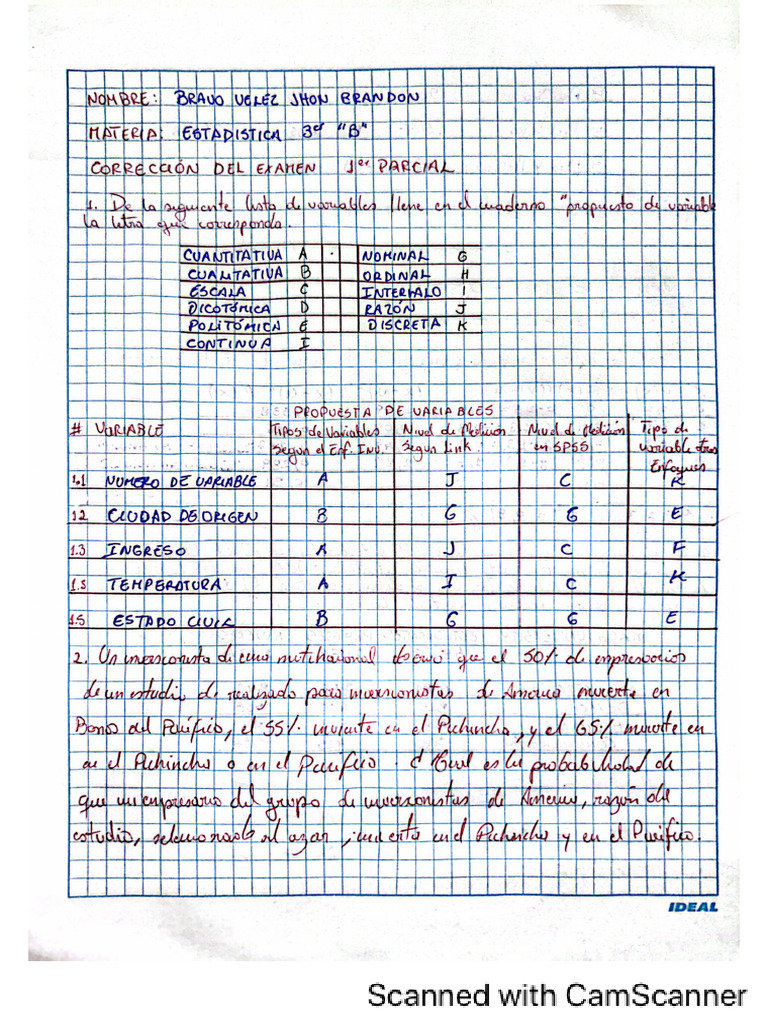 NOMBRE: BRAVO VELEZ JHON BRANDON
MATERIA: ESTADISTICA 3er "B"
CORRECCIÓN DEL EXAMEN 1er PARCIAL
1. De la siguiente lista de variables llene en el cuaderno "propuesta de variable
la letra que corresponda.
CUANTITATIVA A NOMINAL G
CUALITATIVA B ORDINAL H
ESCALA C INTERVALO I
DICOTÓMICA D RAZÓN J
POLITÓMICA E DISCRETA K
CONTINUA I
PROPUESTA DE VARIABLES
# VARIABLE Tipos de Variables Nivel de Medición Nivel de Medición Tipo de
Segun el Enf. Inv. Segun Link. en SPSS variable tres
Enfoques
1.1 NUMERO DE VARIABLE A J C K
1.2 CIUDAD DE ORIGEN B G G E
1.3 INGRESO A J C F
1.5 TEMPERATURA A I C K
1.5 ESTADO CIVIL B G G E
2. Un inversionista de una multinacional observó que el 50% de empresarios
de un estudio de realizado para inversionistas de America invierte en
Banco del Pacífico, el 55% invierte en el Pichincha, y el 65% invierte en
en el Pichincha o en el Pacifico. ¿Cual es la probabilidad de
que un empresario del grupo de inversionistas de America, razón del
estudio, seleccionado al azar, invierta en el Pichincha y en el Pacifico.
IDEAL
Scanned with CamScanner